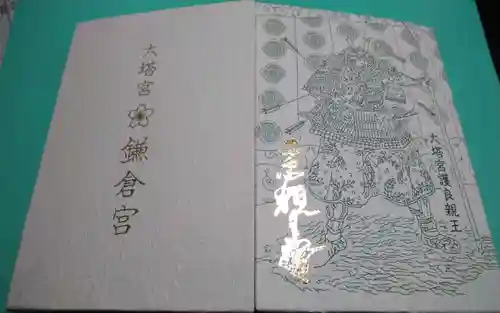 大塔宮
鎌倉宮
大塔宮護良親王